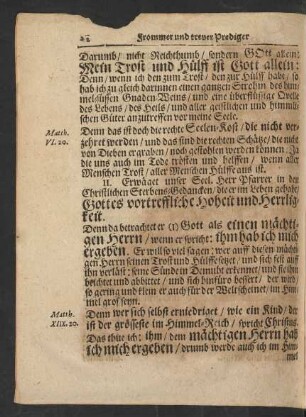 22 Frommer und treuer Prediger
Darumb / nicht Reichthumb / sondern GOtt allein:
Mein Trost und Hülff ist Gott allein:
Denn / wenn ich den zum Trost / den zur Hülff habe / so
hab ich zu gleich darinnen einen gantzen Strohm des him
melsüssen Gnaden-Weins / und eine überflüssige Qvelle
des Lebens / des Heils / und aller geistlichen und himmli-
schen Güter anzutreffen vor meine Seele.
Matth.
VI. 20.
Denn das ist doch die rechte Seelen-Kost / die nicht ver-
zehret werden / und das sind die rechten Schätze / die nicht
von Dieben ergraben / noch gestohlen werden können. Ja
die uns auch im Tode trösten und helffen / wenn aller
Menschen Trost / aller Menschen Hülffe aus ist.
II. Erwäget unser Seel. Herr Pfarrer in der
Christlichen Sterbens-Gedancken / die er im Leben gehabt
Gottes vortreffliche Hoheit und Herrlig-
keit.
Denn da betrachtet er (1) Gott als einen mächti-
gen Herrn / wenn er spricht: ihm hab ich mich
ergeben. Er will so viel sagen: wer auff diesen mächti-
gen Herrn seinen Trost und Hülffe setzet / und sich fest auff
ihn verläst: seine Sünde in Demuth erkennet / und sie ihm
bechtet und abbittet / und sich bußfertig bessert / der wird /
so gering und klein er auch für der Welt scheinet / im Him-
mel groß seyn.
Matth.
XIIX. 20.
Denn wer sich selbst erniedriget / wie ein Kind / der
ist der grösseste im Himmel-Reich / spricht Christus.
Das thue ich: ihm / dem mächtigen Herrn hab
ich mich ergeben / drumb werde auch ich im Him-
mel